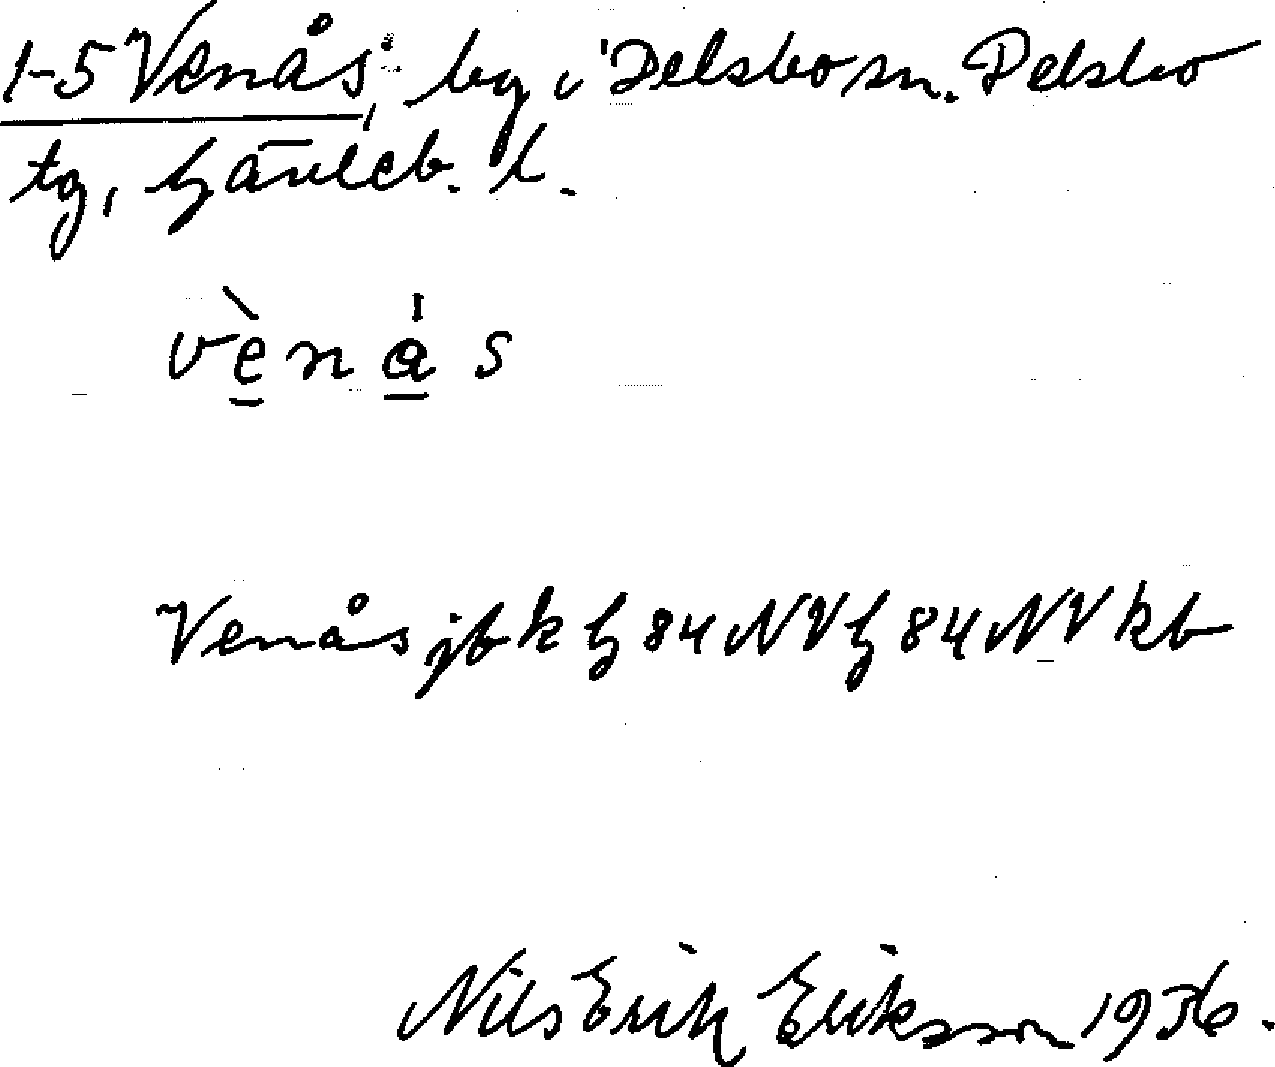 1-5 Venås, by i Delsbo sn. Delsbo
tg, Gävleb. l.
vènås
Venås jb k G 84 NV G 84 NV kb
Nils Erik Eriksson 1936.